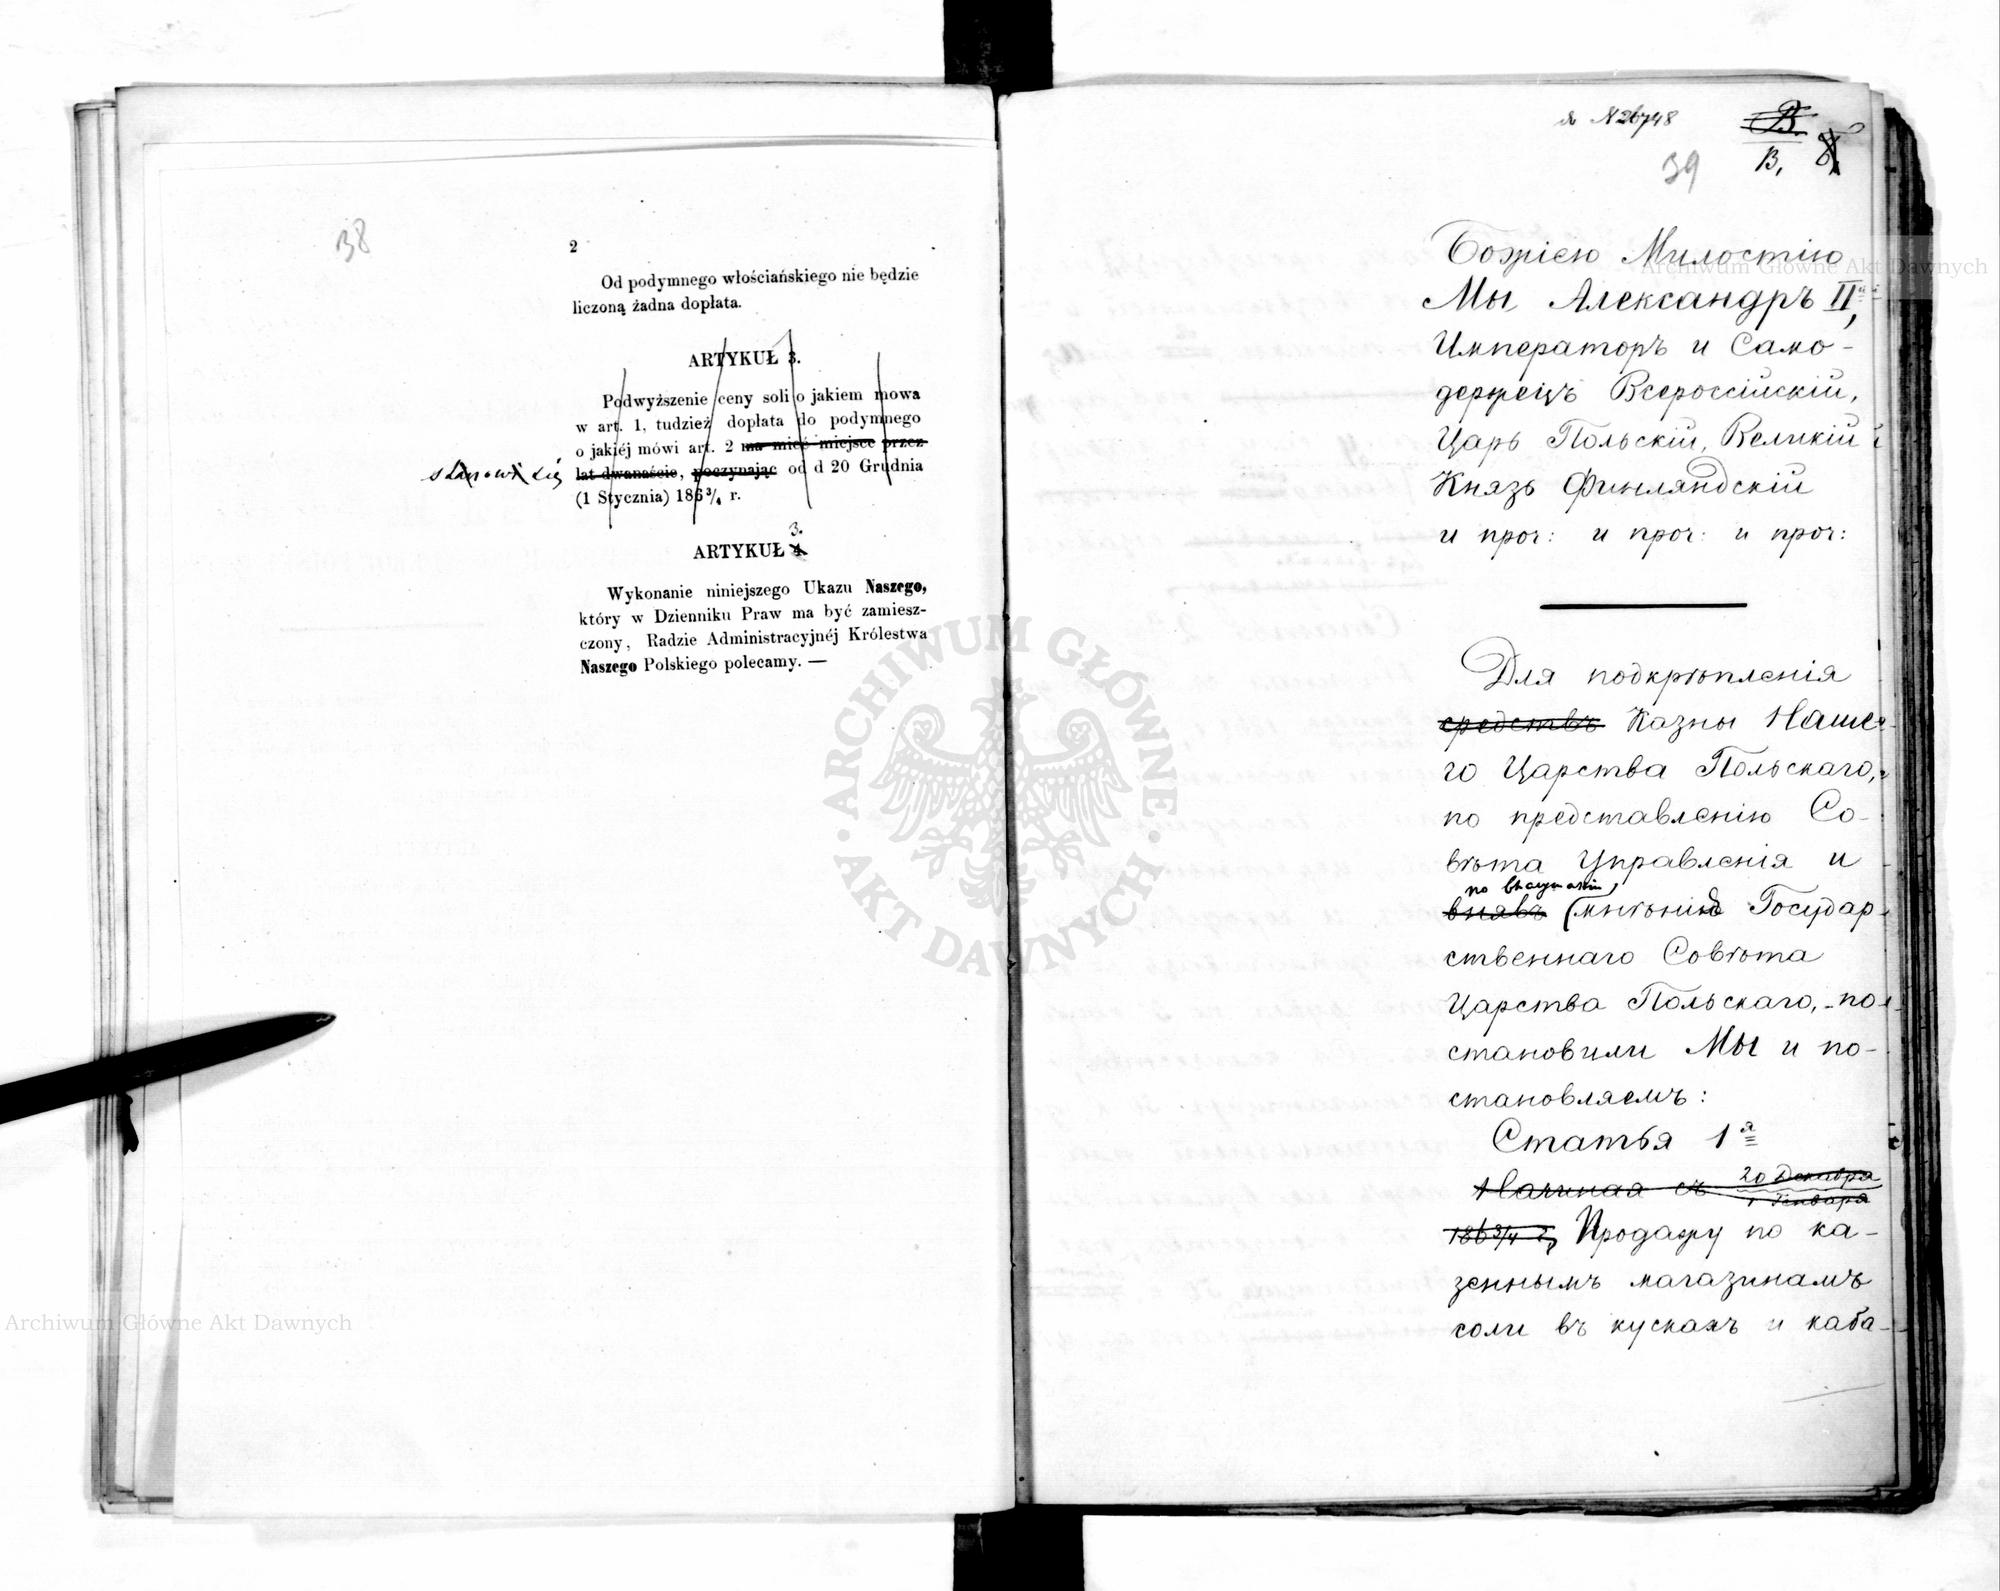 38
2
Od podymnego włościańskiego nie będzie
liczoną żadna dopłata.
ARTYKUŁ 3.
Podwyższenie ceny soli o jakiem mowa
w art. 1, tudzież dopłata do podymnego
o jakiéj mówi art. 2 ma mieć miejsce przez
stanowi się lat dwanaście, poczynając od d 20 Grudnia
(1 Stycznia) 186 3/4 r.
3.
ARTYKUŁ 4.
Wykonanie niniejszego Ukazu Naszego,
który w Dzienniku Praw ma być zamiesz-
czony, Radzie Administracyjnéj Królestwa
Naszego Polskiego polecamy. —
N 26748
B.
39
В,
Божіею Милостію
Мы Александръ II,
Императоръ и Само-
держецъ Всероссійскій,
Царь Польскій, Великій
Князь Финляндскій
и проч: и проч: и проч:
Для подкрѣпленія
средствъ Казны Наше-
го Царства Польскаго,
по представленію Со-
вѣта Управленія и
по выслушаніи
внявъ мнѣнію Государ-
ственнаго Совѣта
Царства Польскаго, по-
становили Мы и по-
становляемъ:
Статья 1я
Начиная съ 20 Декабря
1 Января
186 3/4 г, Продажу по ка-
зеннымъ магазинамъ
соли въ кускахъ и каба-
Archiwum Główne Akt Dawnych
Archiwum Główne Akt Dawnych
ARCHIWUM GŁÓWNE · AKT DAWNYCH ·